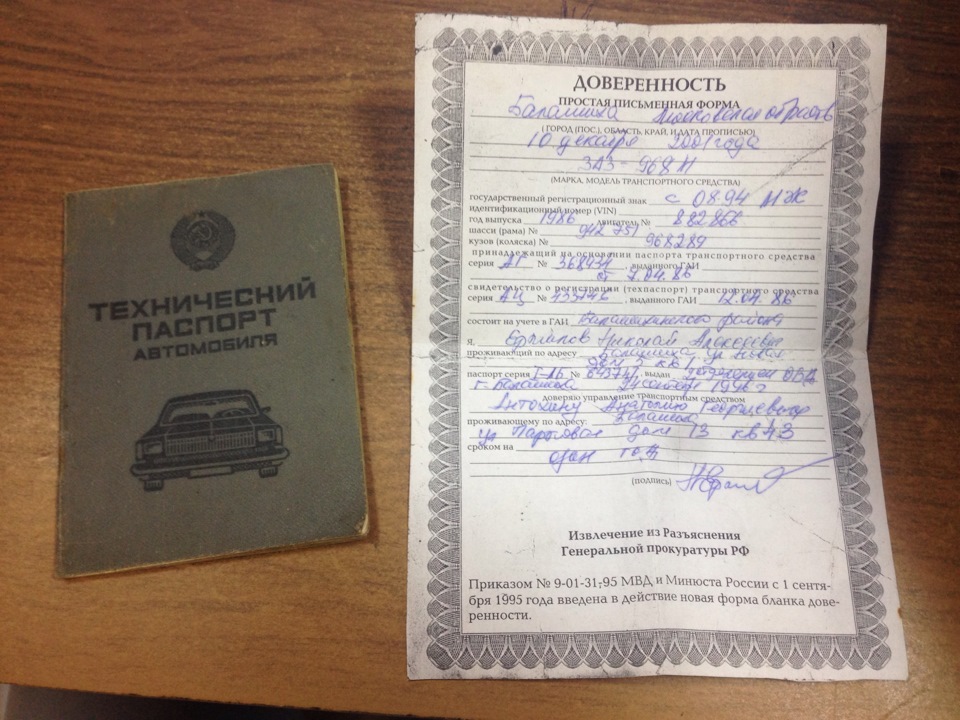 ТЕХНИЧЕСКИЙ
ПАСПОРТ
АВТОМОБИЛЯ
ДОВЕРЕННОСТЬ
ПРОСТАЯ ПИСЬМЕННАЯ ФОРМА
Балашиха Московская область
(ГОРОД (ПОС.), ОБЛАСТЬ, КРАЙ, И ДАТА ПРОПИСЬЮ)
10 декабря 2001 года
ЗАЗ-968М
(МАРКА, МОДЕЛЬ ТРАНСПОРТНОГО СРЕДСТВА)
государственный регистрационный знак с 0894 МЖ
идентификационный номер (VIN)
год выпуска 1986 двигатель № 882866
шасси (рама) № 942751
кузов (коляска) № 968289
принадлежащий на основании паспорта транспортного средства
серия АГ № 368434, выданного ГАИ
от 2.04.86
свидетельство о регистрации (техпаспорт) транспортного средства
серия АЦ № 433746, выданного ГАИ 12.04.86
состоит на учете в ГАИ Балашихинского района
Я, Николай Алексеевич
проживающий по адресу Балашиха ул Новая
паспорт серия № выдан отделением ОВД
г. Балашиха 1996 г
доверяю управление транспортным средством
Антохину Анатолию Георгиевичу
проживающему по адресу: Балашиха
ул Парковая дом 13 кв 43
сроком на
один год
(подпись)
Извлечение из Разъяснения
Генеральной прокуратуры РФ
Приказом № 9-01-31-95 МВД и Минюста России с 1 сентя-
бря 1995 года введена в действие новая форма бланка дове-
ренности.